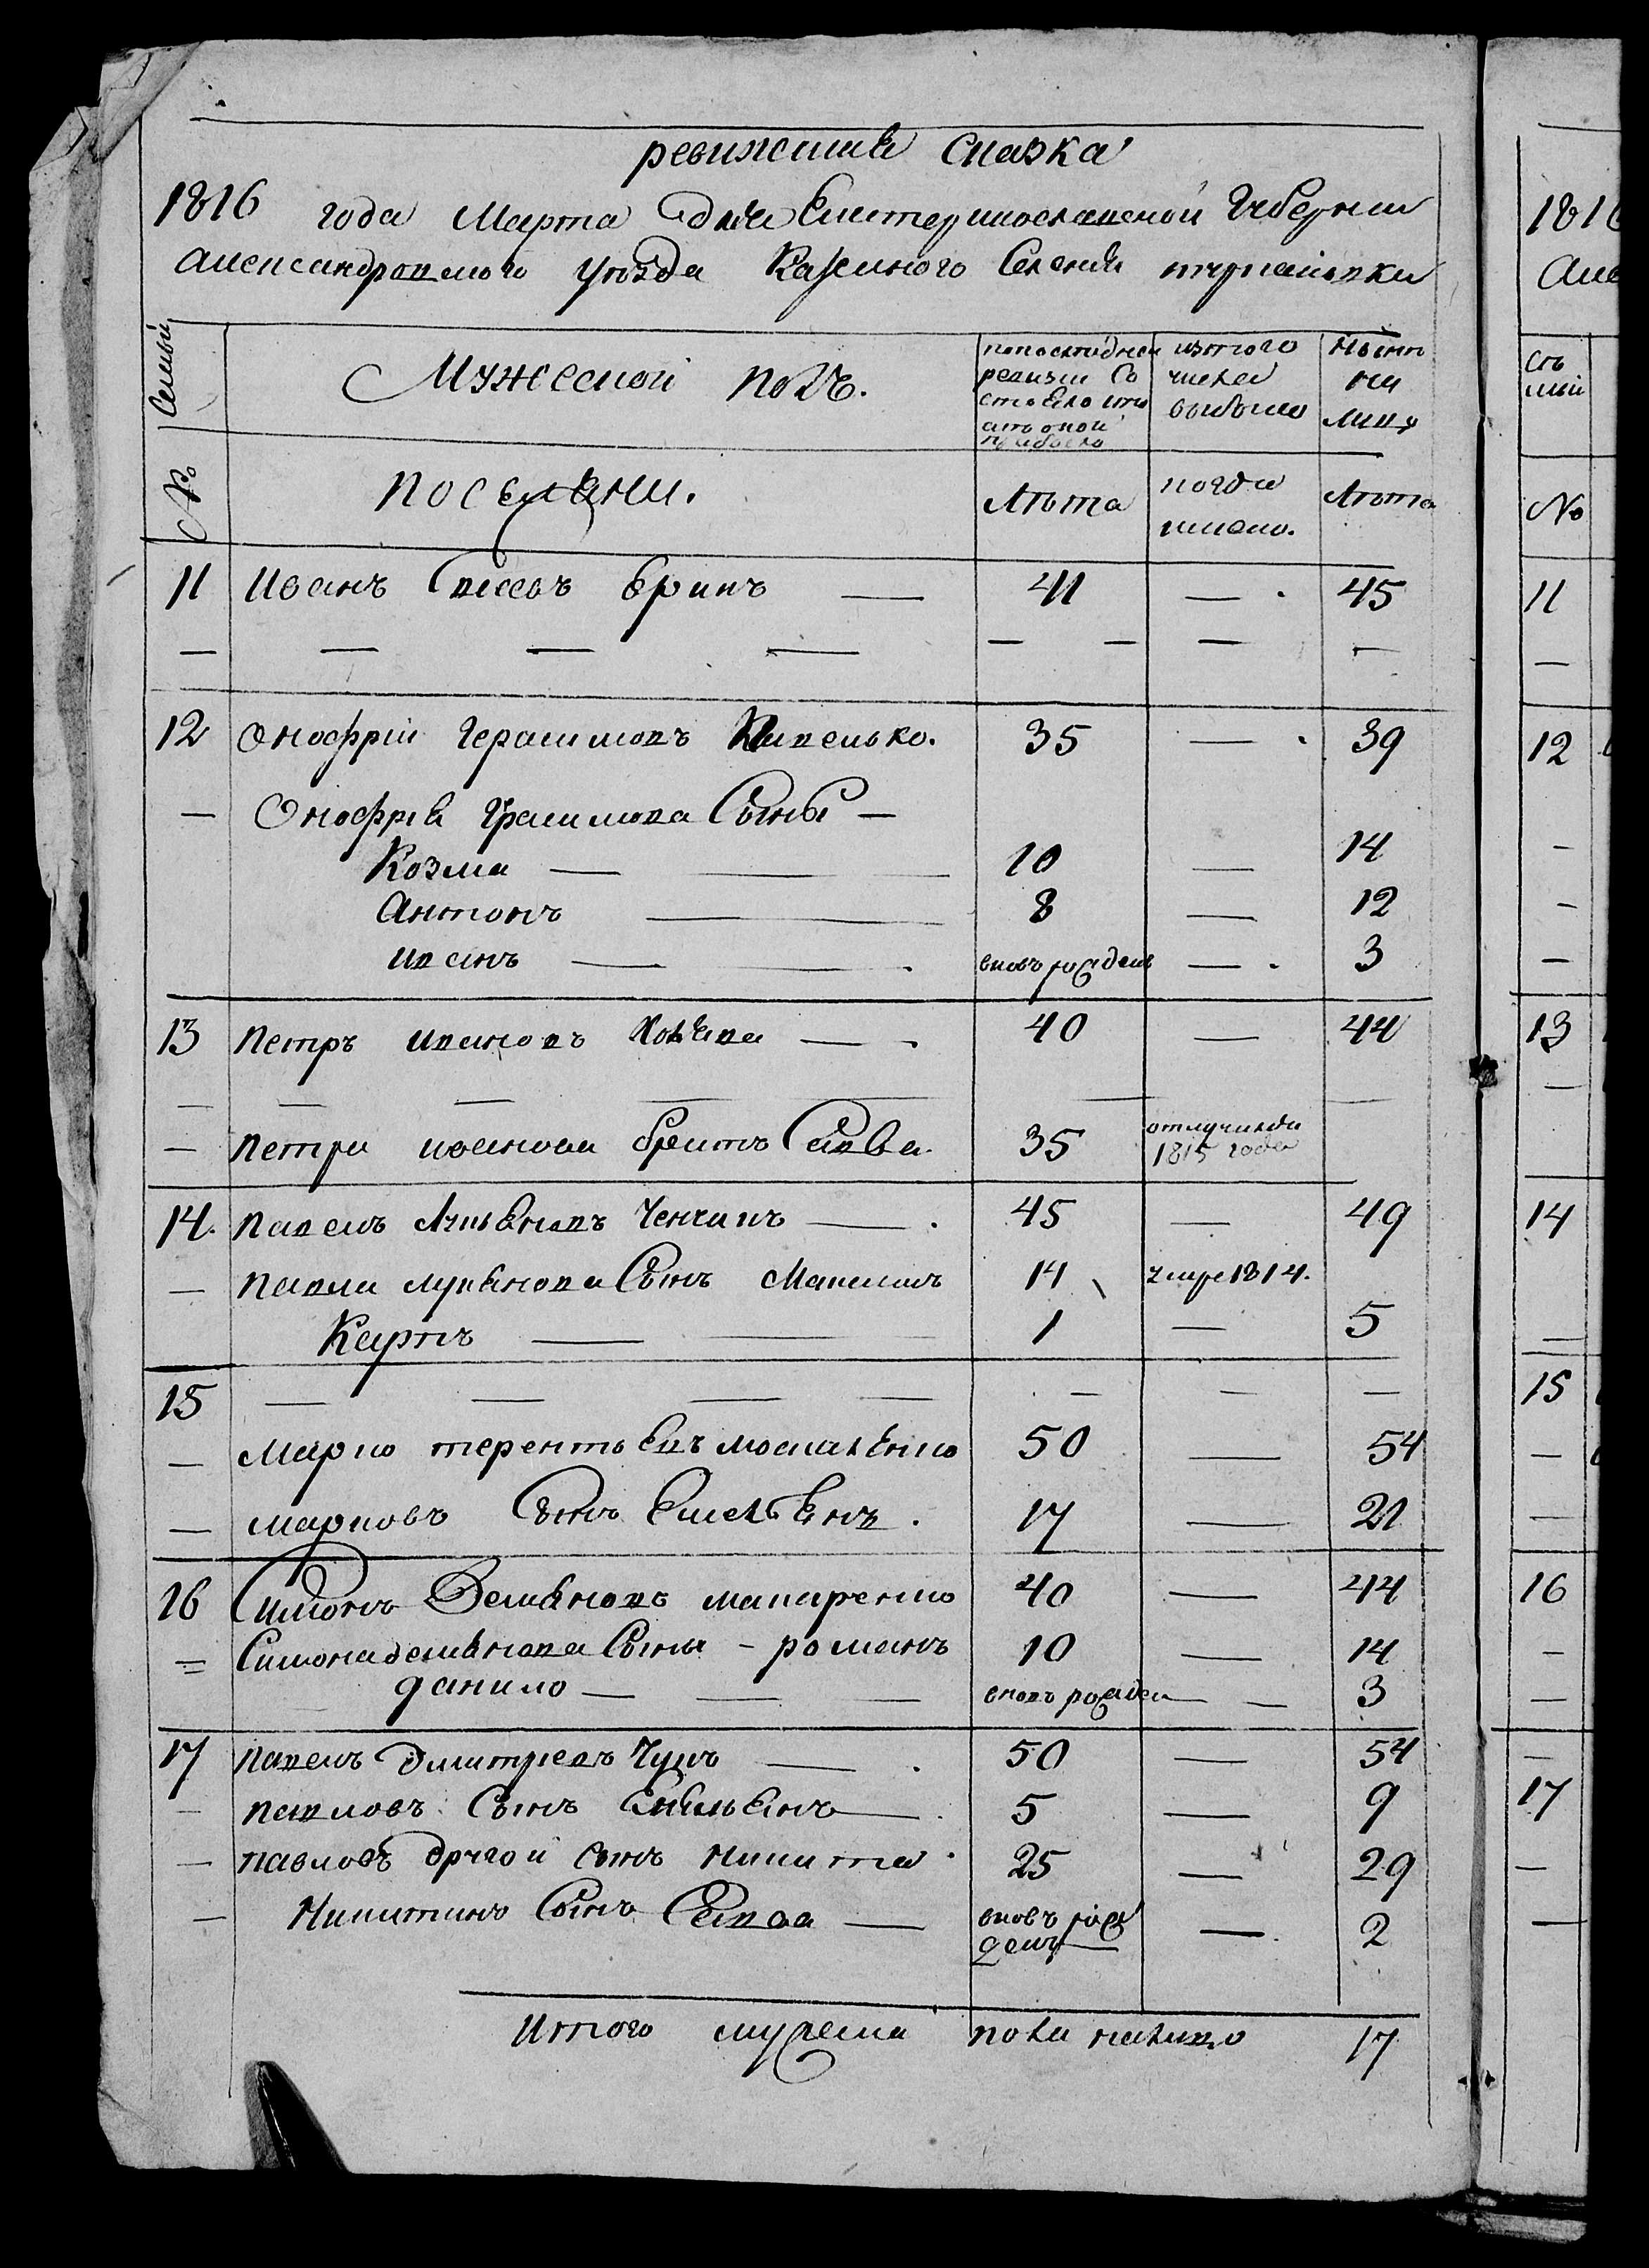 ревижская сказка
1816 года Марта дня Екатеринославской Губернии
Александровского уезда Казенного Селения
Семьи
Мужеской полъ.
попоследней ревизии состояло или
изтого числа выбыло
Ныне на лицо
№
поселяни.
Лѣта
когда имено.
Лѣта
11 Иванъ Саввъ — 41 — 45
— — — — — — — —
12 Онофрій Герасимовъ — 35 — 39
— Онофрія Герасимова Сыны —
Козма — 10 — 14
Антонъ — 8 — 12
Иванъ — вновь рожденъ — 3
13 Петръ Ивановъ — 40 — 44
— — — — — —
— Петра Иванова братъ Савва 35 отлучился 1815 года
14. Павелъ Лукьяновъ — 45 — 49
— Павла Лукьянова Сынъ Максимъ 14 умре 1814.
Карпъ — 1 — 5
15 — — — — — — —
— Марко терентьевъ москаленко 50 — 54
— марковъ Сынъ Емельянъ. 17 — 21
16 Симонъ Демьяновъ макаренко 40 — 44
= Симона демьянова Сыны - романъ 10 — 14
данило — — — вновь рожден — 3
17 Павелъ Дмитревъ — 50 — 54
— павловъ Сынъ Емельянъ — 5 — 9
— павловъ другой сынъ никита 25 — 29
— Никитинъ Сынъ Савва — вновь рожденъ — 2
Итого мужеска пола налицо 17
1816
Але
съ
мьи
№
11
—
12
—
—
—
13
—
14
—
15
—
—
16
—
—
—
17
—
—